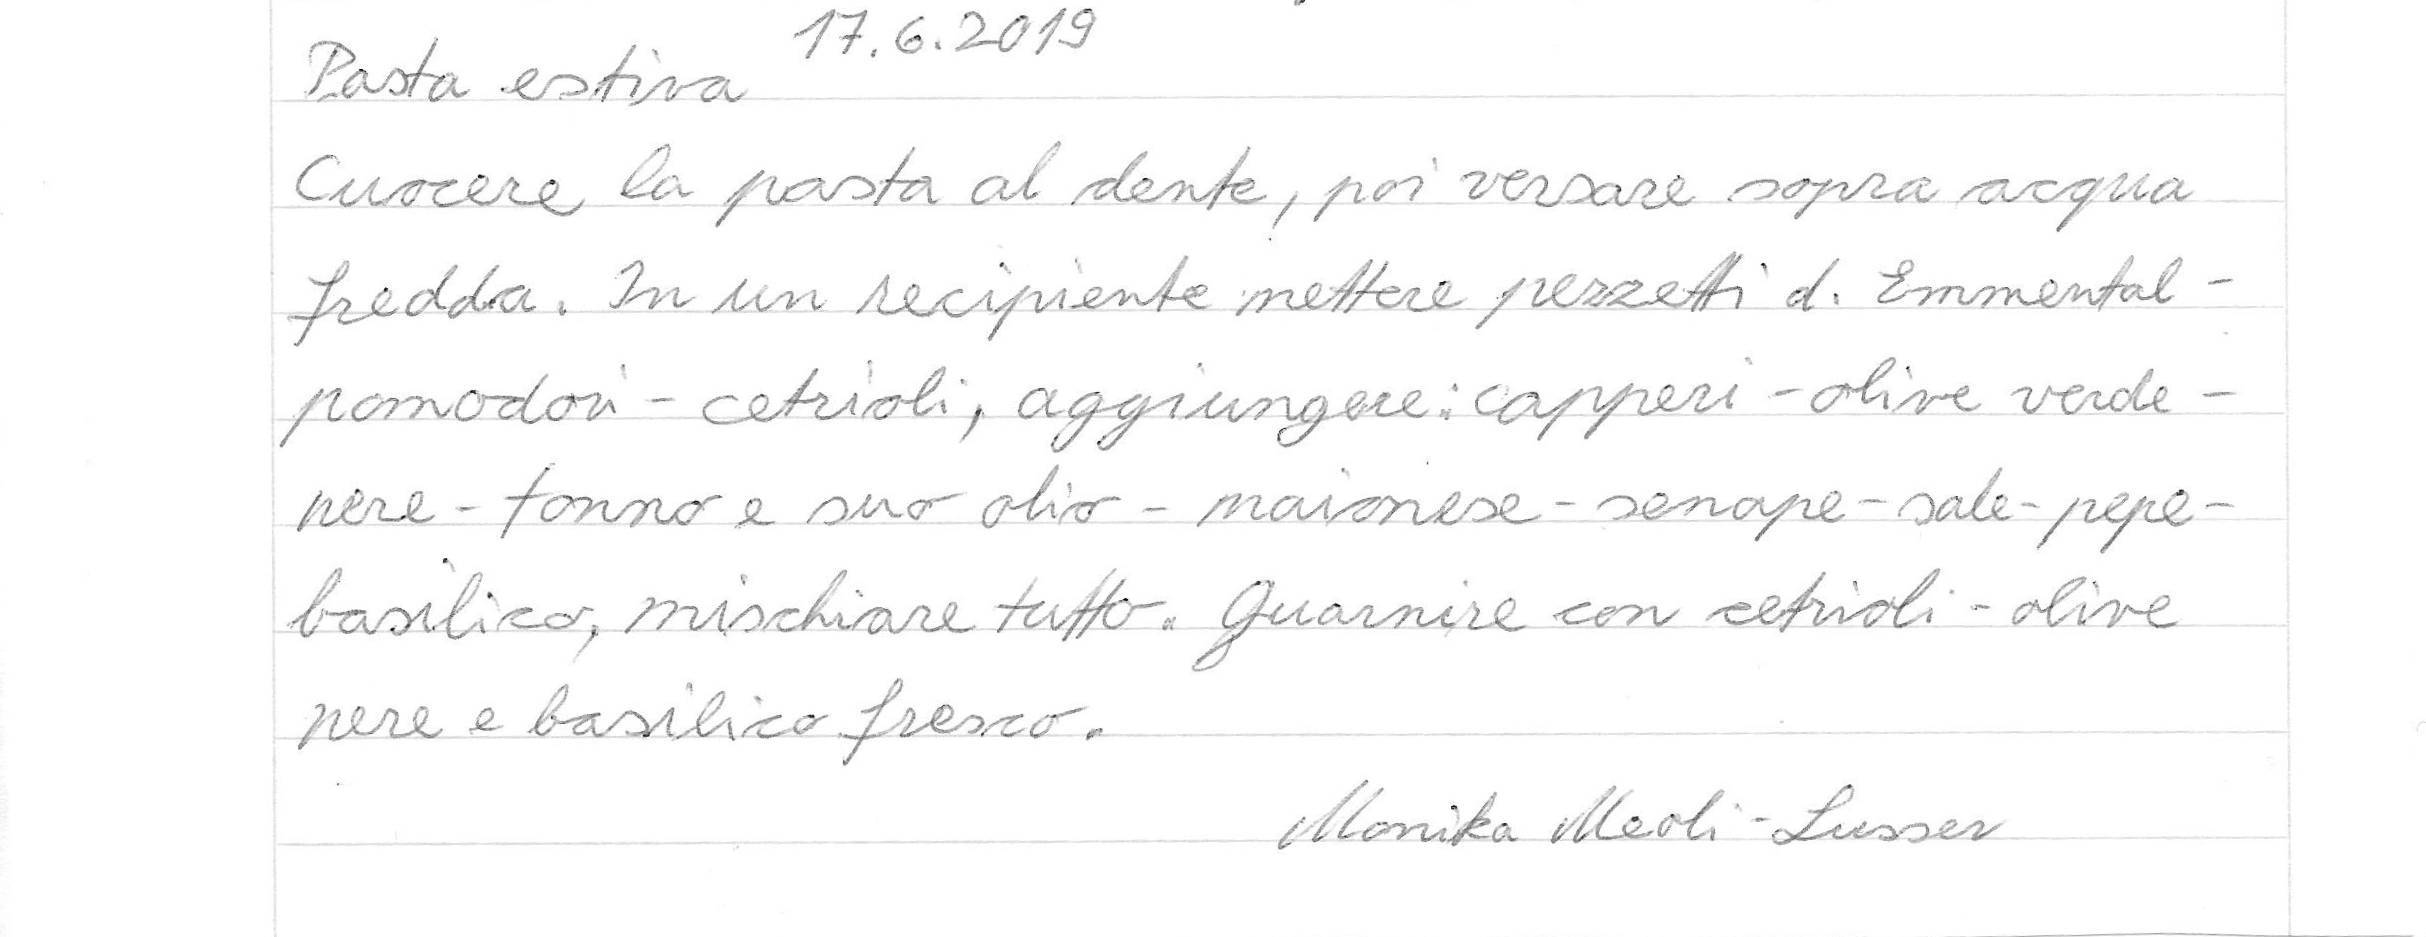 17.6.2019
Pasta estiva
Cuocere la pasta al dente, poi versare sopra acqua
fredda. In un recipiente mettere pezzetti d. Emmental -
pomodori - cetrioli, aggiungere: capperi - olive verde -
nere - tonno e suo olio - maionese - senape - sale - pepe -
basilico, mischiare tutto. Guarnire con cetrioli - olive
nere e basilico fresco.
Monika Meoli - Lusser